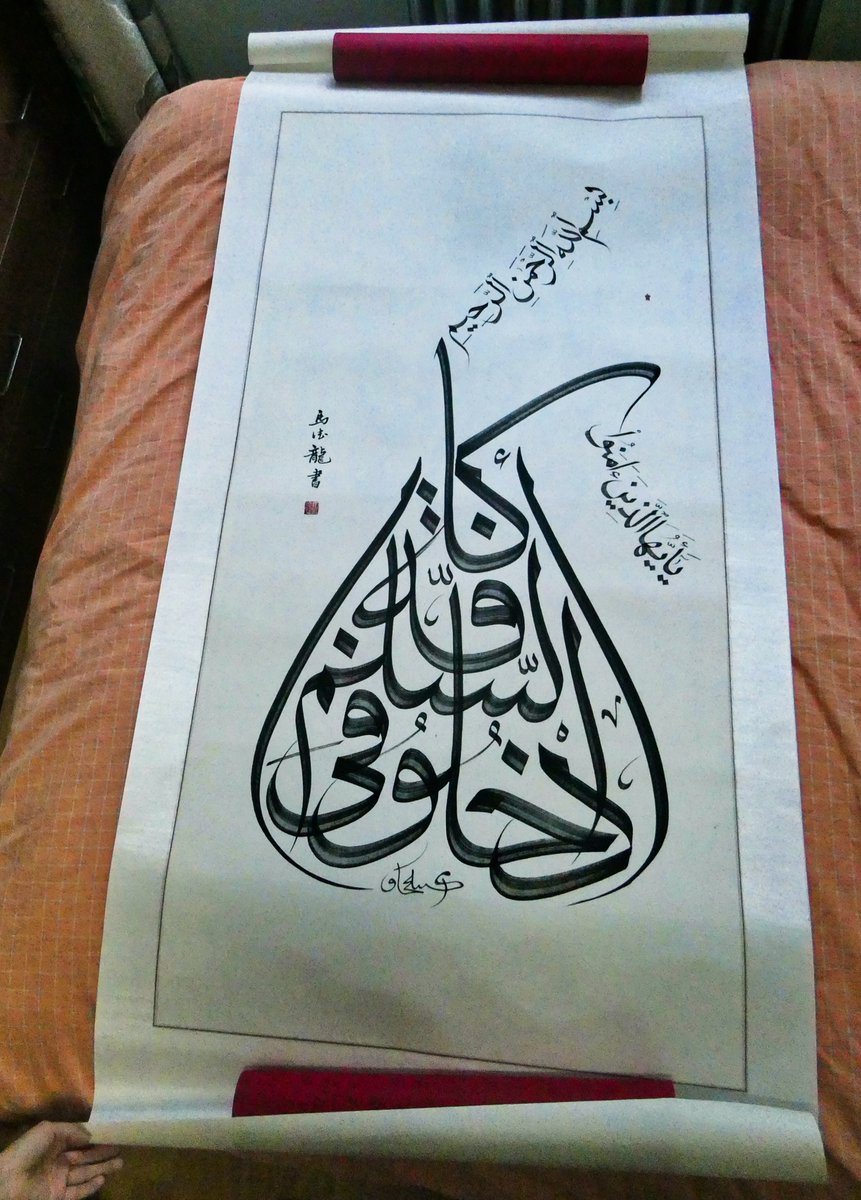 بِسْمِ اللَّهِ الرَّحْمَٰنِ الرَّحِيمِ
يَٰٓأَيُّهَا الَّذِينَ ءَامَنُوا
ادْخُلُوا فِي السِّلْمِ كَافَّةً
馬德龍書